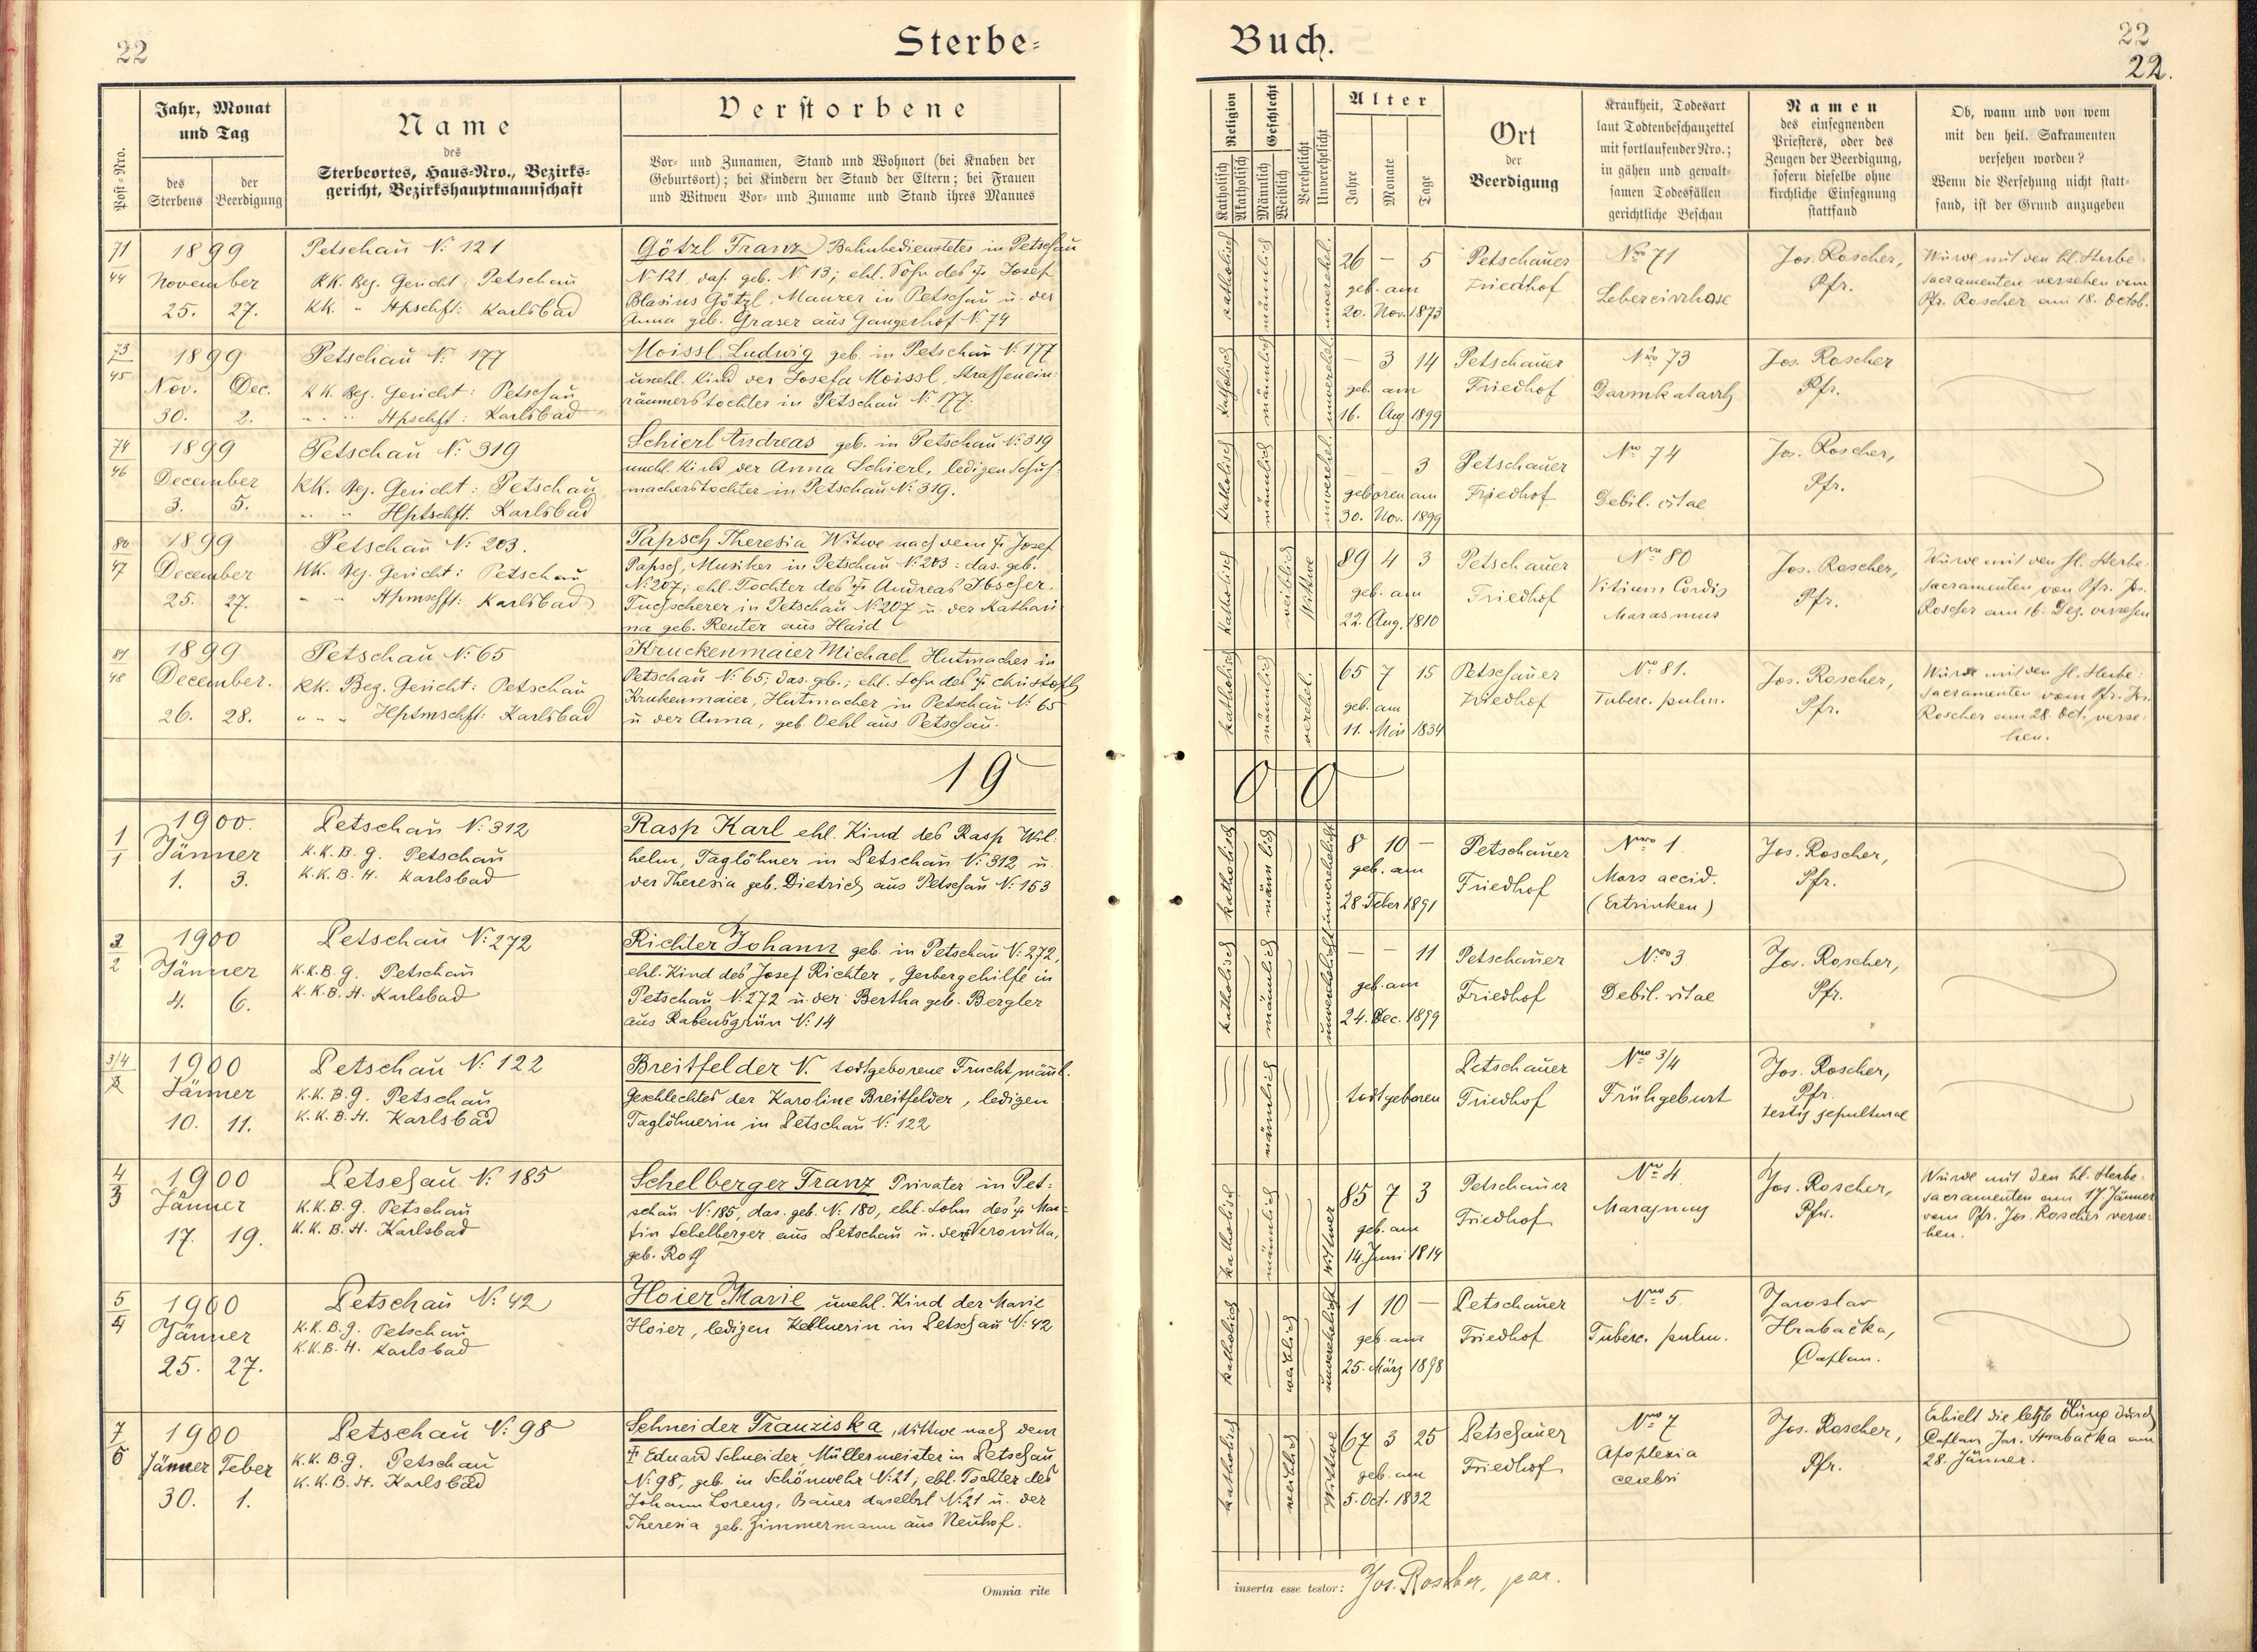 22
Sterbe-
Post-Nro.
Jahr, Monat
und Tag
des
Sterbens
der
Beerdigung
Name
des
Sterbeortes, Haus-Nro., Bezirks-
gericht, Bezirkshauptmannschaft
Verstorbene
Vor- und Zunamen, Stand und Wohnort (bei Knaben der
Geburtsort); bei Kindern der Stand der Eltern; bei Frauen
und Witwen Vor- und Zuname und Stand ihres Mannes
71
44
1899
November
25. 27.
Petschau N: 121
KK. Bez. Gericht: Petschau
KK. " Hpschft: Karlsbad
Götzl Franz Bahnbediensteter in Petschau
N: 121, das. geb. N: 13; ehl. Sohn des † Josef
Blasius Götzl, Maurer in Petschau u. der
Anna geb. Graser aus Gangerhof N: 74
73
45
1899
Nov. Dec.
30. 2.
Petschau N: 177
KK. Bez. Gericht: Petschau
" " Hpschft: Karlsbad
Moissl Ludwig geb. in Petschau N: 177
unehl. Kind der Josefa Moissl, Strassenein-
räumerstochter in Petschau N: 177.
74
46
1899
December
3. 5.
Petschau N: 319
KK. Bez. Gericht: Petschau
" " Hptschft. Karlsbad
Schierl Andreas geb. in Petschau N: 319
unehl. Kind der Anna Schierl, ledigen Schuh-
macherstochter in Petschau N: 319.
80
47
1899
December
25. 27.
Petschau N: 203.
KK. Bez. Gericht: Petschau
" " Hpmschft: Karlsbad
Papsch Theresia Witwe nach dem † Josef
Papsch, Musiker in Petschau N: 203: das. geb.
N: 207; ehl. Tochter des † Andreas Ibscher,
Tuchscherer in Petschau N: 207 u. der Kathari
na geb. Reuter aus Haid
81
48
1899
December.
26. 28.
Petschau N: 65
KK. Bez. Gericht: Petschau
" " " Hptmschft: Karlsbad
Kruckenmaier Michael Hutmacher in
Petschau N: 65; das. geb.; ehl. Sohn des † Christoph
Krukenmaier, Hutmacher in Petschau N: 65
u. der Anna, geb. Oehl aus Petschau.
19
1
1
1900.
Jänner
1. 3.
Petschau N: 312
K.K.B.G. Petschau
K.K.B.H. Karlsbad
Rasp Karl ehl. Kind des Rasp Wil-
helm, Taglöhner in Petschau N: 312 u.
der Theresia geb. Dietrich aus Petschau N: 153
3
2
1900
Jänner
4. 6.
Petschau N: 272
K.K.B.G. Petschau
K.K.B.H. Karlsbad
Richter Johann geb. in Petschau N: 272,
ehl. Kind des Josef Richter, Gerbergehilfe in
Petschau N: 272 u. der Bertha geb. Bergler
aus Rabensgrün N: 14
3/4
1900
Jänner
10. 11.
Petschau N: 122
K.K.B.G. Petschau
K.K.B.H. Karlsbad
Breitfelder N. todtgeborene Frucht männl.
Geschlechtes der Karoline Breitfelder, ledigen
Taglöhnerin in Petschau N: 122
4
3
1900
Jänner
17. 19.
Petschau N: 185
K.K.B.G. Petschau
K.K.B.H. Karlsbad
Schelberger Franz Privater in Pet-
schau N: 185, das. geb. N: 180, ehl. Sohn des † Mar-
tin Schelberger aus Petschau u. der Veronika,
geb. Roth
5
4
1900
Jänner
25. 27.
Petschau N: 42
K.K.B.G. Petschau
K.K.B.H. Karlsbad
Hoier Marie unehl. Kind der Marie
Hoier, ledigen Kellnerin in Petschau N: 42
7
5
1900
Jänner Feber
30. 1.
Petschau N: 98
K.K.B.G. Petschau
K.K.B.H. Karlsbad
Schneider Franziska, Wittwe nach dem
† Eduard Schneider, Müllermeister in Petschau
N: 98, geb. in Schönwehr N: 21; ehl. Tochter des
Johann Lorenz, Bauer daselbst N: 21 u. der
Theresia geb. Zimmermann aus Neuhof.
Omnia rite
Buch.
22
22.
Religion
Katholisch
Akatholisch
Geschlecht
Männlich
Weiblich
Verehelicht
Unverehelicht
Alter
Jahre
Monate
Tage
Ort
der
Beerdigung
Krankheit, Todesart
laut Todtenbeschauzettel
mit fortlaufender Nro.;
in gähen und gewalt-
samen Todesfällen
gerichtliche Beschau
Namen
des einsegnenden
Priesters, oder des
Zeugen der Beerdigung,
sofern dieselbe ohne
kirchliche Einsegnung
stattfand
Ob, wann und von wem
mit den heil. Sakramenten
versehen worden?
Wenn die Versehung nicht statt-
fand, ist der Grund anzugeben
katholisch
männlich
unverehel.
26 — 5
geb. am
20. Nov. 1873
Petschauer
Friedhof
Nro 71
Lebercirrhose
Jos. Roscher,
Pfr.
Wurde mit den hl. Sterbe-
sacramenten versehen vom
Pfr. Roscher am 18. Octob.
katholisch
männlich
unverehel.
— 3 14
geb. am
16. Aug 1899
Petschauer
Friedhof
Nro 73
Darmkatarrh
Jos. Roscher
Pfr.
katholisch
männlich
unverehel.
— — 3
geboren am
30. Nov. 1899
Petschauer
Friedhof
Nro 74
Debil. vitae
Jos. Roscher,
Pfr.
katholisch
weiblich
Wittwe
89 4 3
geb. am
22. Aug. 1810
Petschauer
Friedhof
Nro 80
Vitium Cordis
Marasmus
Jos. Roscher,
Pfr.
Wurde mit den hl. Sterbe-
sacramenten von Pfr. Jos.
Roscher am 16. Dez. versehen
katholisch
männlich
verehel.
65 7 15
geb. am
11. Mai 1834
Petschauer
Friedhof
No 81.
Tuberc. pulm.
Jos. Roscher,
Pfr.
Wurde mit den hl. Sterbe-
sacramenten vom Pfr. Jos.
Roscher am 28. Oct. verse-
hen.
0 0
katholisch
männlich
unverehelicht
8 10 —
geb. am
28. Feber 1891
Petschauer
Friedhof
Nro 1.
Mors accid.
(Ertrinken)
Jos. Roscher,
Pfr.
katholisch
männlich
unverehelicht
— — 11
geb. am
24. Dec. 1899
Petschauer
Friedhof
Nro 3
Debil. vitae
Jos. Roscher,
Pfr.
männlich
todtgeboren
Petschauer
Friedhof
Nro 3/4
Frühgeburt
Jos. Roscher,
Pfr.
testis sepulturae
katholisch
männlich
Wittwer
85 7 3
geb. am
14. Juni 1814
Petschauer
Friedhof
Nro 4.
Marasmus
Jos. Roscher,
Pfr.
Wurde mit den hl. Sterbe-
sacramenten am 17 Jänner
vom Pfr. Jos. Roscher verse-
hen.
katholisch
weiblich
unverehelicht
1 10 —
geb. am
25. März 1898
Petschauer
Friedhof
Nro 5.
Tuberc. pulm.
Jaroslav
Hrabačka,
Caplan.
katholisch
weiblich
Wittwe
67 3 25
geb. am
5. Oct. 1832
Petschauer
Friedhof
Nro 7
Apoplexia
cerebri
Jos. Roscher,
Pfr.
Erhielt die letzte Ölung durch
Caplan Jar. Hrabačka am
28. Jänner.
inserta esse testor: Jos. Roscher, par.